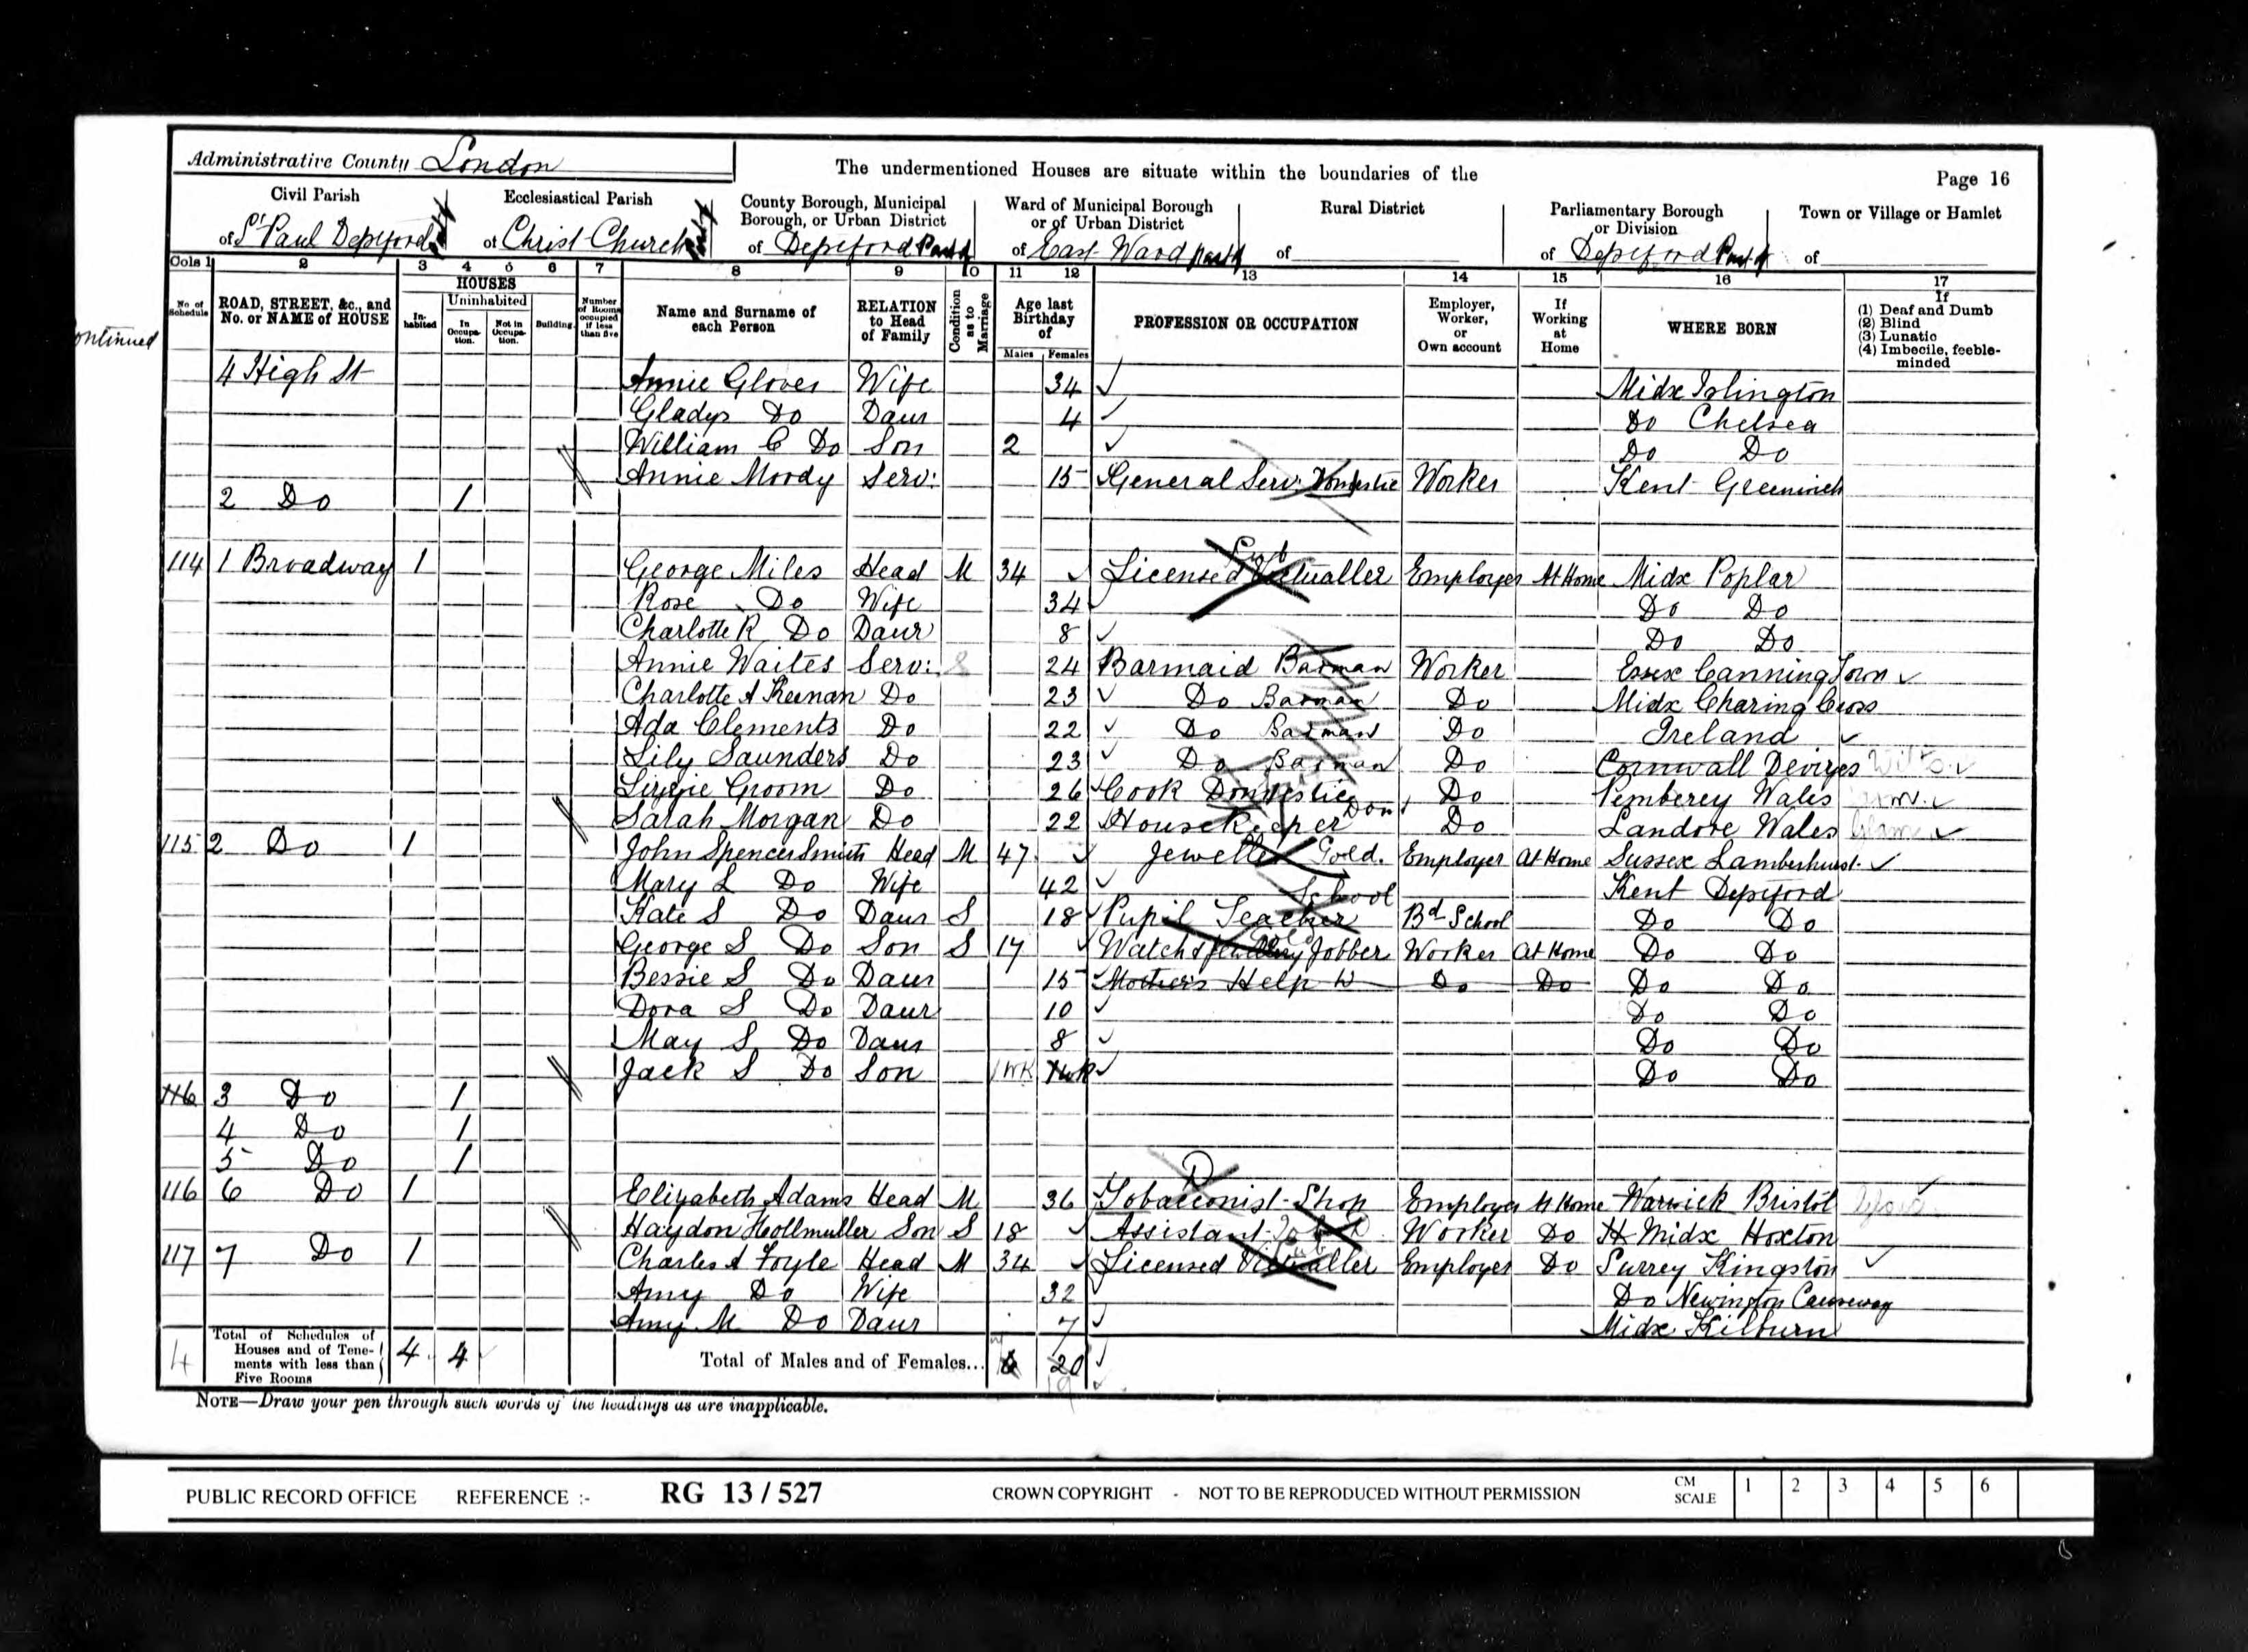 Administrative County London
The undermentioned Houses are situate within the boundaries of the
Page 16
Civil Parish
of St Paul Deptford
Ecclesiastical Parish
of Christ Church
County Borough, Municipal
Borough, or Urban District
of Deptford Part of
Ward of Municipal Borough
or of Urban District
of East Ward part of
Rural District
of
Parliamentary Borough
or Division
of Deptford Part of
Town or Village or Hamlet
of
Cols 1 2 3 4 5 6 7 8 9 10 11 12 13 14 15 16 17
No. of Schedule
ROAD, STREET, &c., and
No. or NAME of HOUSE
HOUSES
In-habited
Uninhabited
In Occupa-tion.
Not in Occupa-tion.
Building.
Number of Rooms occupied if less than five
Name and Surname of
each Person
RELATION
to Head
of Family
Condition as to Marriage
Age last
Birthday
of
Males Females
PROFESSION OR OCCUPATION
Employer,
Worker,
or
Own account
If
Working
at
Home
WHERE BORN
If
(1) Deaf and Dumb
(2) Blind
(3) Lunatic
(4) Imbecile, feeble-
minded
ontinued
4 High St Annie Glover Wife 34 Midx Islington
Gladys Do Daur 4 Do Chelsea
William C Do Son 2 Do Do
Annie Moody Serv: 15 General Serv: Domestic Worker Kent Greenwich
2 Do 1
Pub
114 1 Broadway 1 George Miles Head M 34 Licensed Victualler Employer At Home Midx Poplar
Rose Do Wife 34 Do Do
Charlotte R Do Daur 8 Do Do
Annie Waites Serv: S 24 Barmaid Barman Worker Essex Canning Town
Charlotte A Keenan Do 23 Do Barman Do Midx Charing Cross
Ada Clements Do 22 Do Barman Do Ireland
Lily Saunders Do 23 Do Barman Do Cornwall Devizes Wilts
Lizzie Groom Do 26 Cook Domestic Do Pemberey Wales
Sarah Morgan Do 22 Housekeeper Dom Do Landore Wales Glam
115 2 Do 1 John Spencer Smith Head M 47 Jeweller Gold. Employer At Home Sussex Lamberhurst
Mary L Do Wife 42 Kent Deptford
School
Kate S Do Daur S 18 Pupil Teacher Bd School Do Do
George S Do Son S 17 Watch & Jewellery Jobber Worker At Home Do Do
Bessie S Do Daur 15 Mother's Help W Do Do Do Do
Dora S Do Daur 10 Do Do
May S Do Daur 8 Do Do
Jack S Do Son 1 WK 1wk Do Do
116 3 Do 1
4 Do 1
5 Do 1
116 6 Do 1 Elizabeth Adams Head M 36 Tobacconist Shop Employer At Home Warwick Bristol
Haydon Hollmuller Son S 18 Assistant Worker Do Midx Hoxton
Pub
117 7 Do 1 Charles A Foyle Head M 34 Licensed Victualler Employer Do Surrey Kingston
Amy Do Wife 32 Do Newington Causeway
Amy M Do Daur 7 Midx Kilburn
4
Total of Schedules of
Houses and of Tene-
ments with less than
Five Rooms
4 4
Total of Males and of Females... 6 20
19
NOTE—Draw your pen through such words of the headings as are inapplicable.
PUBLIC RECORD OFFICE REFERENCE :- RG 13 / 527 CROWN COPYRIGHT - NOT TO BE REPRODUCED WITHOUT PERMISSION
CM
SCALE
1 2 3 4 5 6